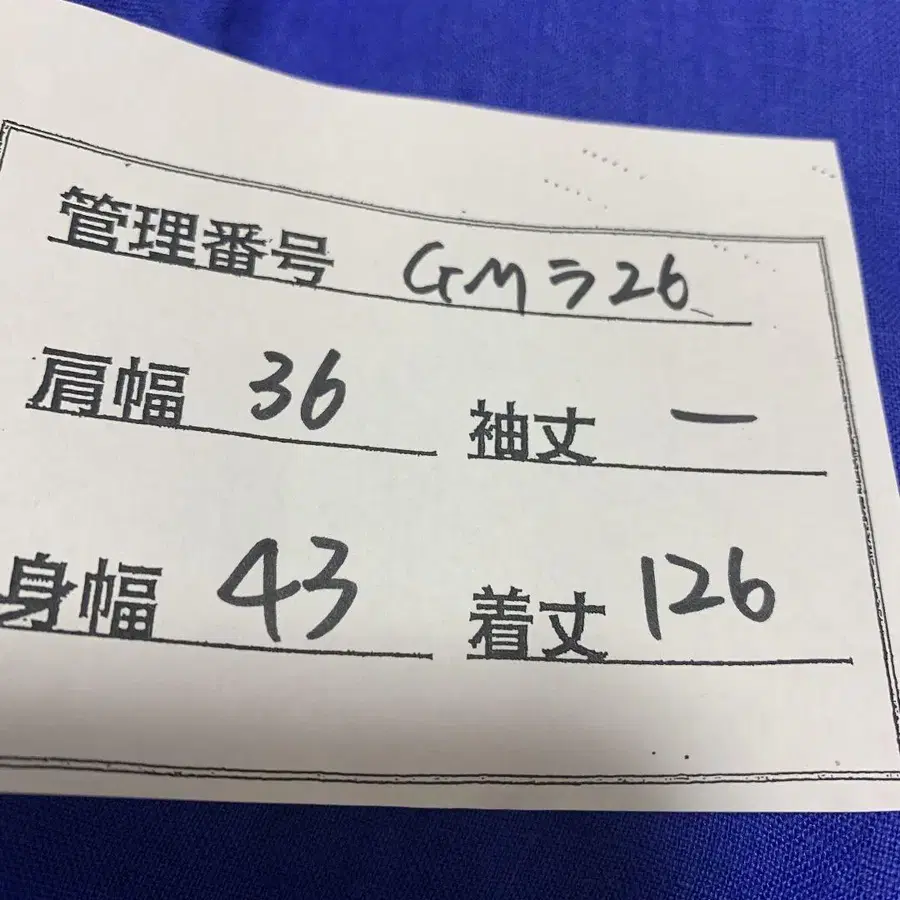 管理番号 GMラ26
肩幅 36 袖丈 ー
身幅 43 着丈 126